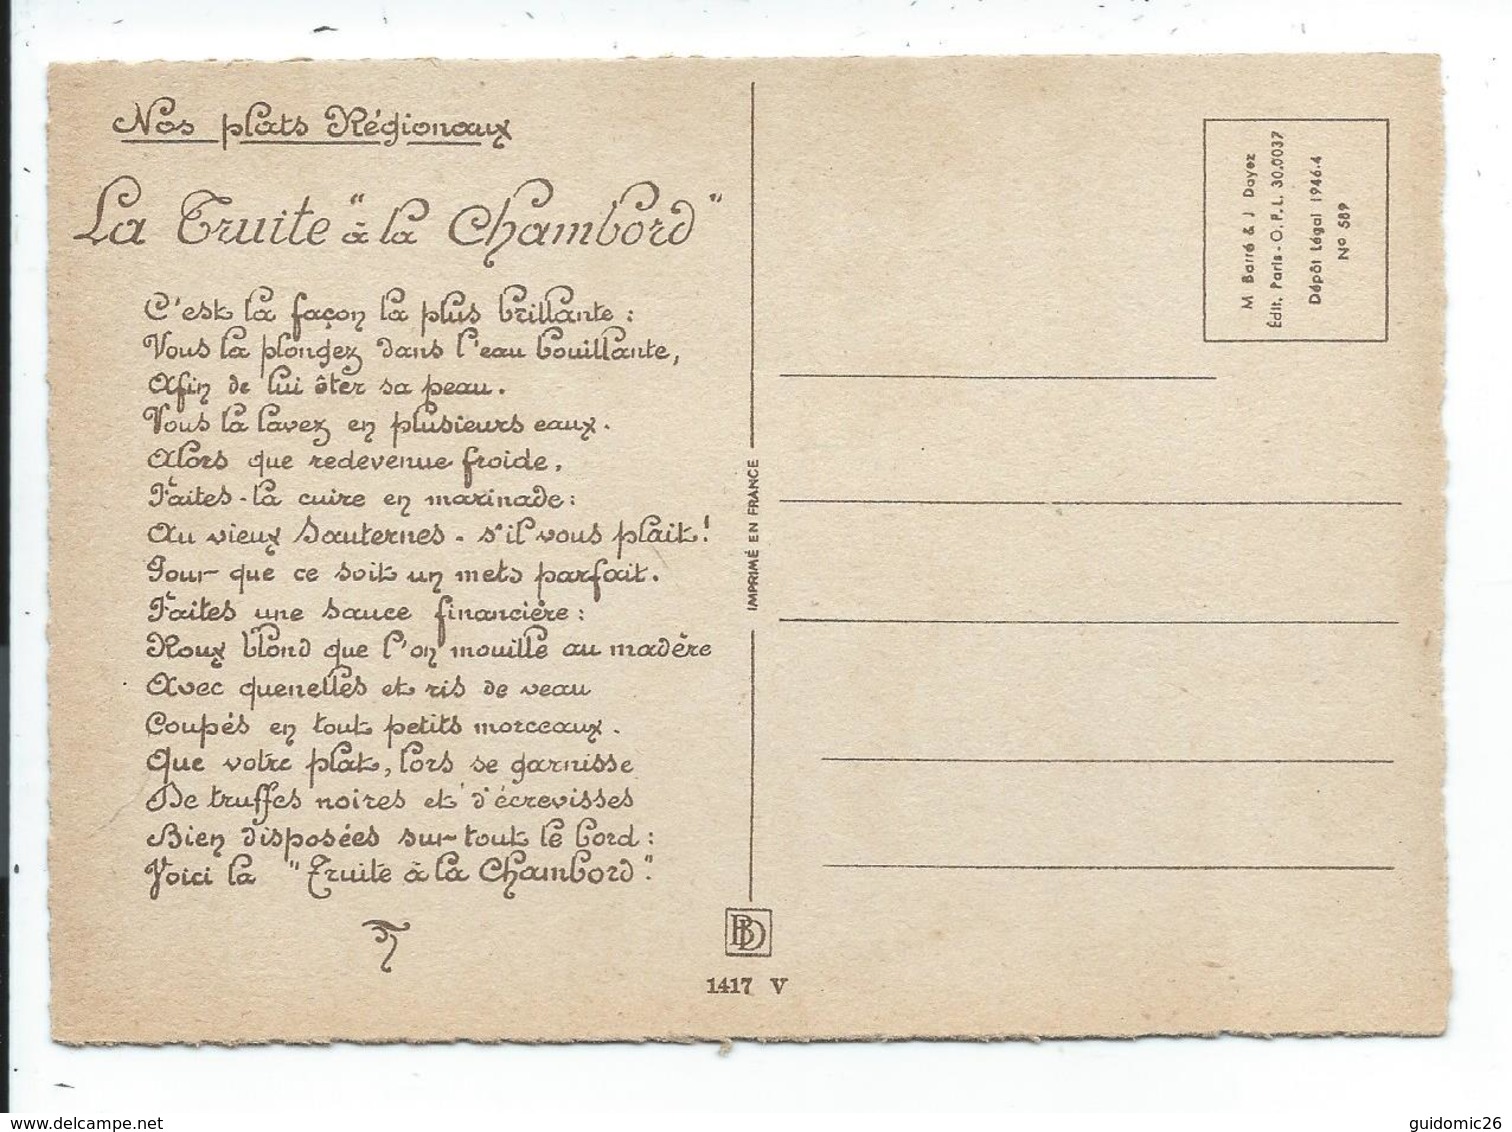 Nos plats Régionaux
La Truite "à la Chambord"
C'est la façon la plus brillante :
Vous la plongez dans l'eau bouillante,
Afin de lui ôter sa peau.
Vous la lavez en plusieurs eaux.
Alors que redevenue froide,
Faites-la cuire en marinade :
Au vieux Sauternes - s'il vous plait !
Pour que ce soit un mets parfait.
Faites une sauce financière :
Roux blond que l'on mouille au madère
Avec quenelles et ris de veau
Coupés en tout petits morceaux.
Que votre plat, lors se garnisse
De truffes noires et d'écrevisses
Bien disposées sur tout le bord :
Voici la "Truite à la Chambord".
IMPRIMÉ EN FRANCE
BD
1417 V
M Barré & J Dayez
Édit. Paris - O.P.L. 30.0037
Dépôt Légal 1946-4
N° 589
www.delcampe.net
guidomic26